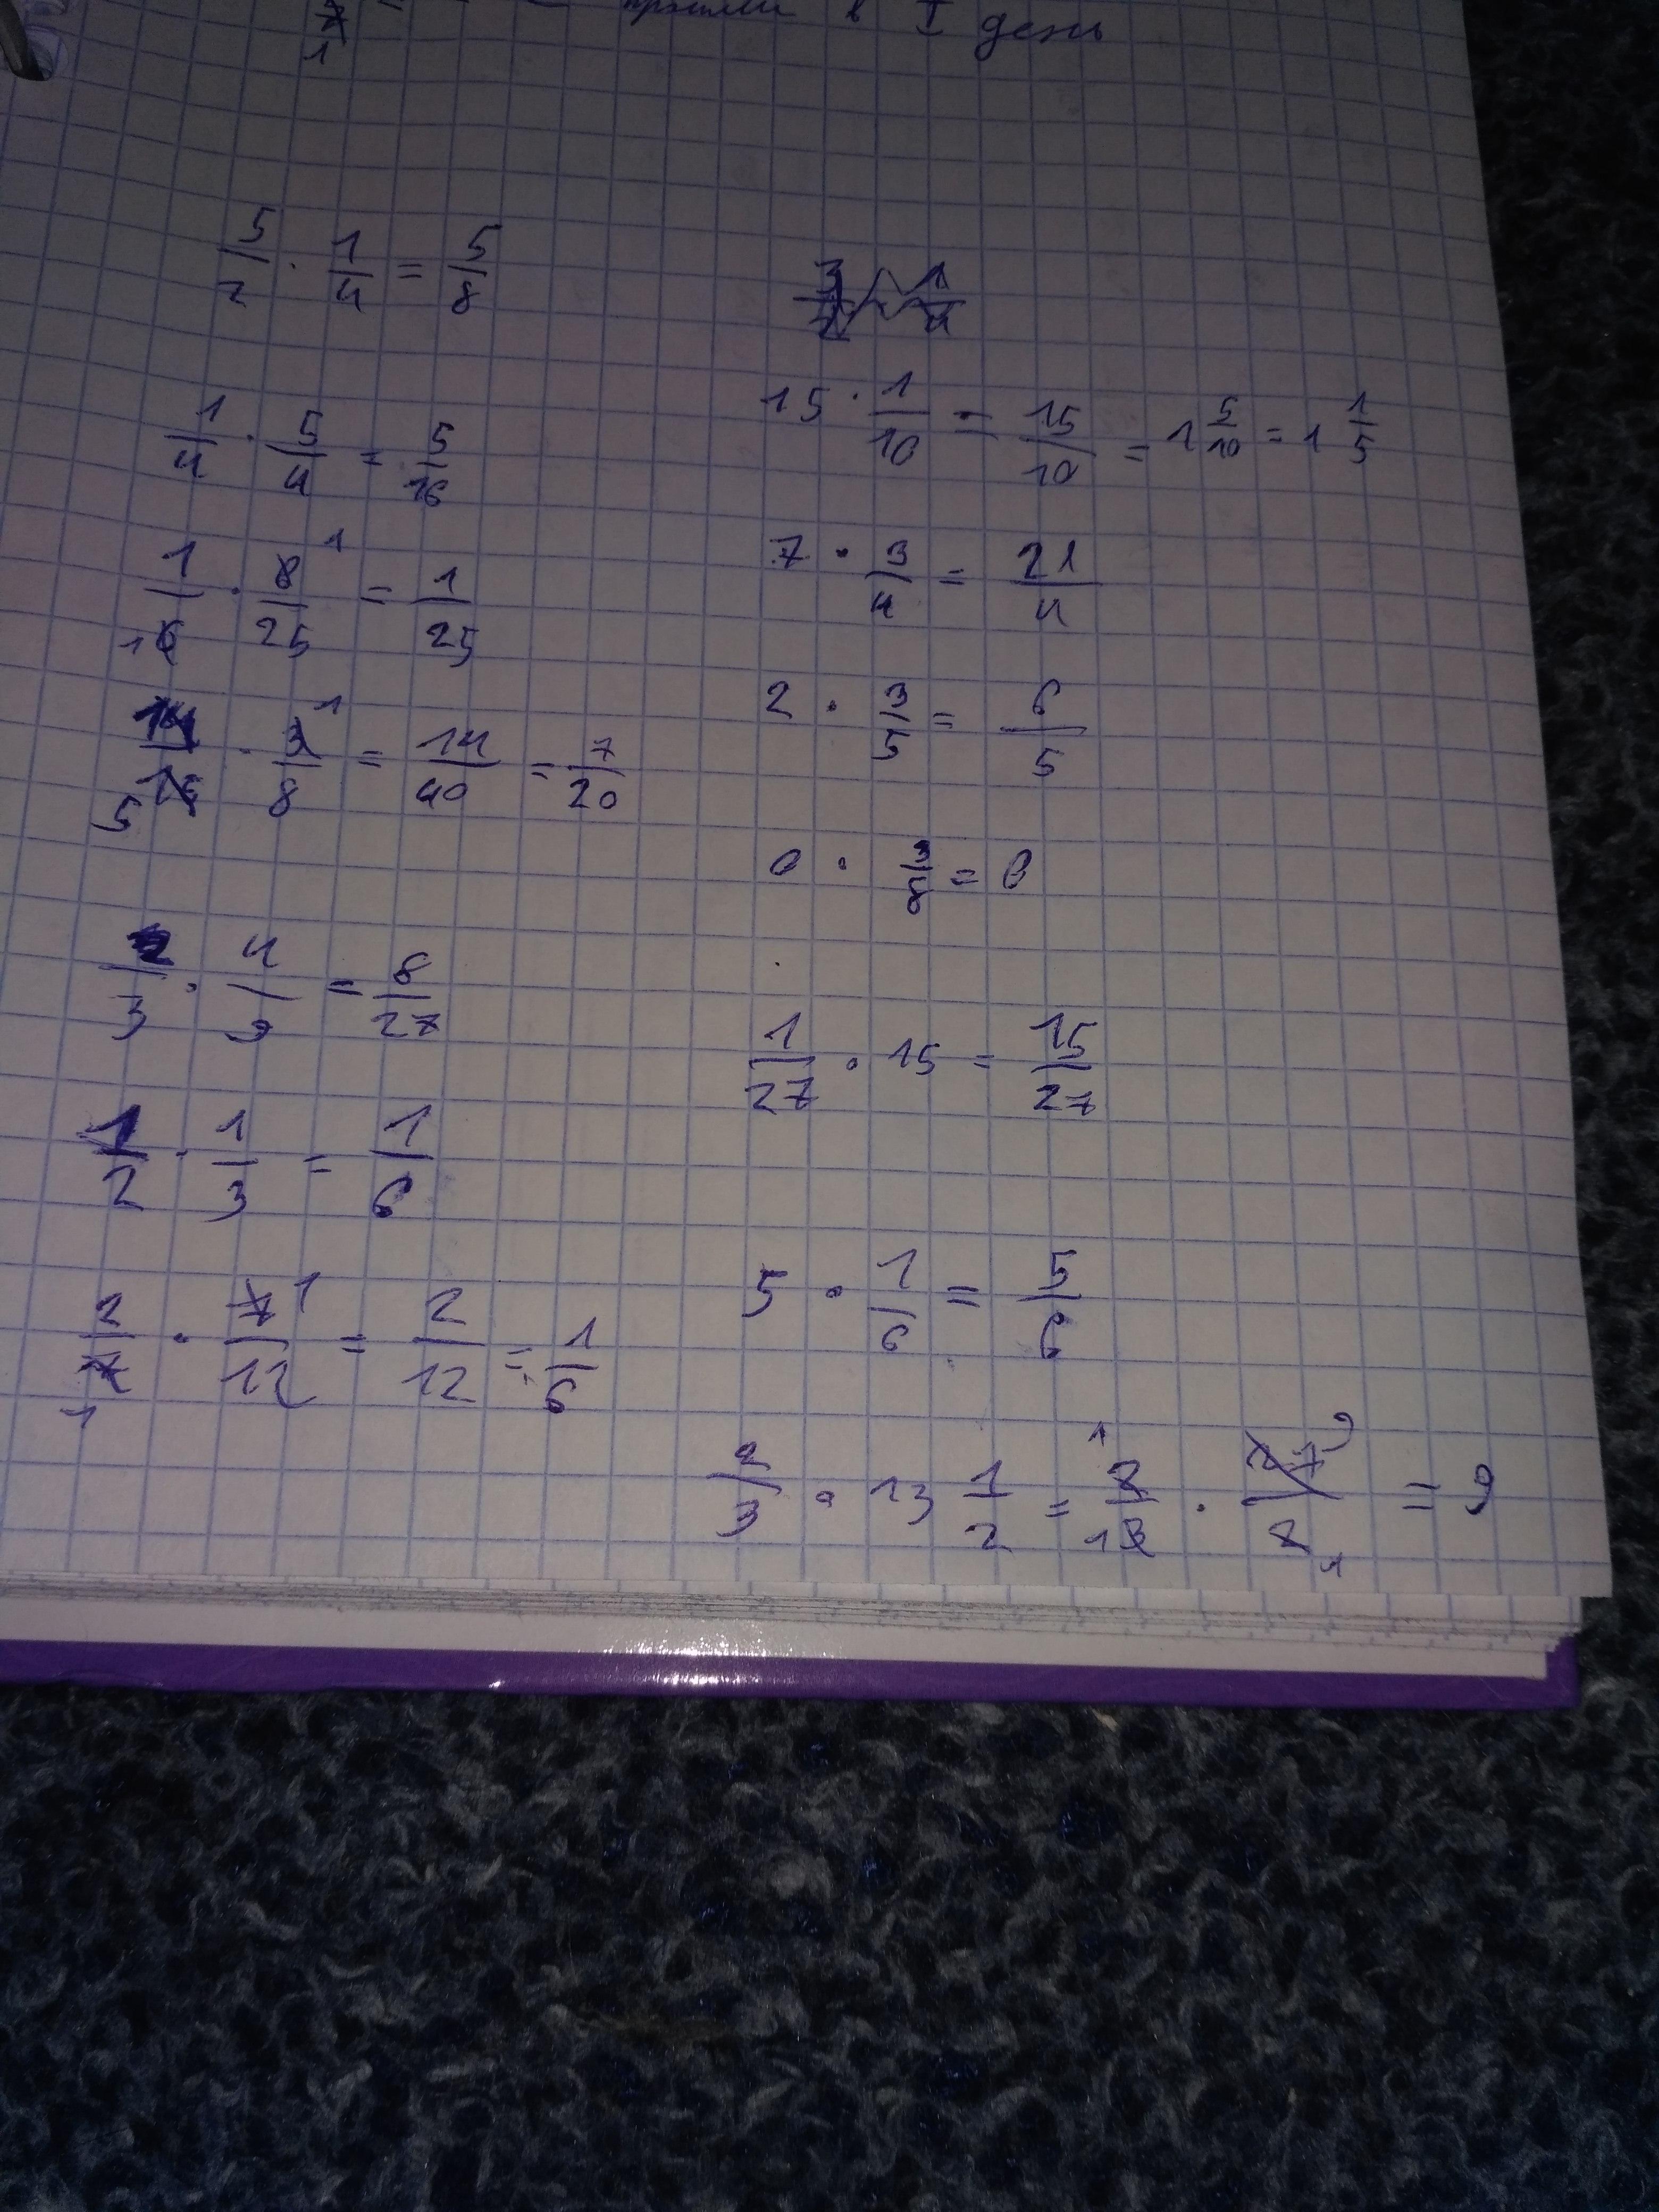 в I день
5/2 · 1/4 = 5/8
1/4 · 5/4 = 5/16
1/8 · 8/25 = 1/25
14/15 · 3/8 = 14/40 = 7/20
2/3 · 4/9 = 8/27
1/2 · 1/3 = 1/6
2/7 · 7/12 = 2/12 = 1/6
15 · 1/10 = 15/10 = 1 5/10 = 1 1/5
7 · 3/4 = 21/4
2 · 3/5 = 6/5
0 · 3/8 = 0
1/27 · 15 = 15/27
5 · 1/6 = 5/6
2/3 · 13 1/2 = 2/3 · 27/2 = 9